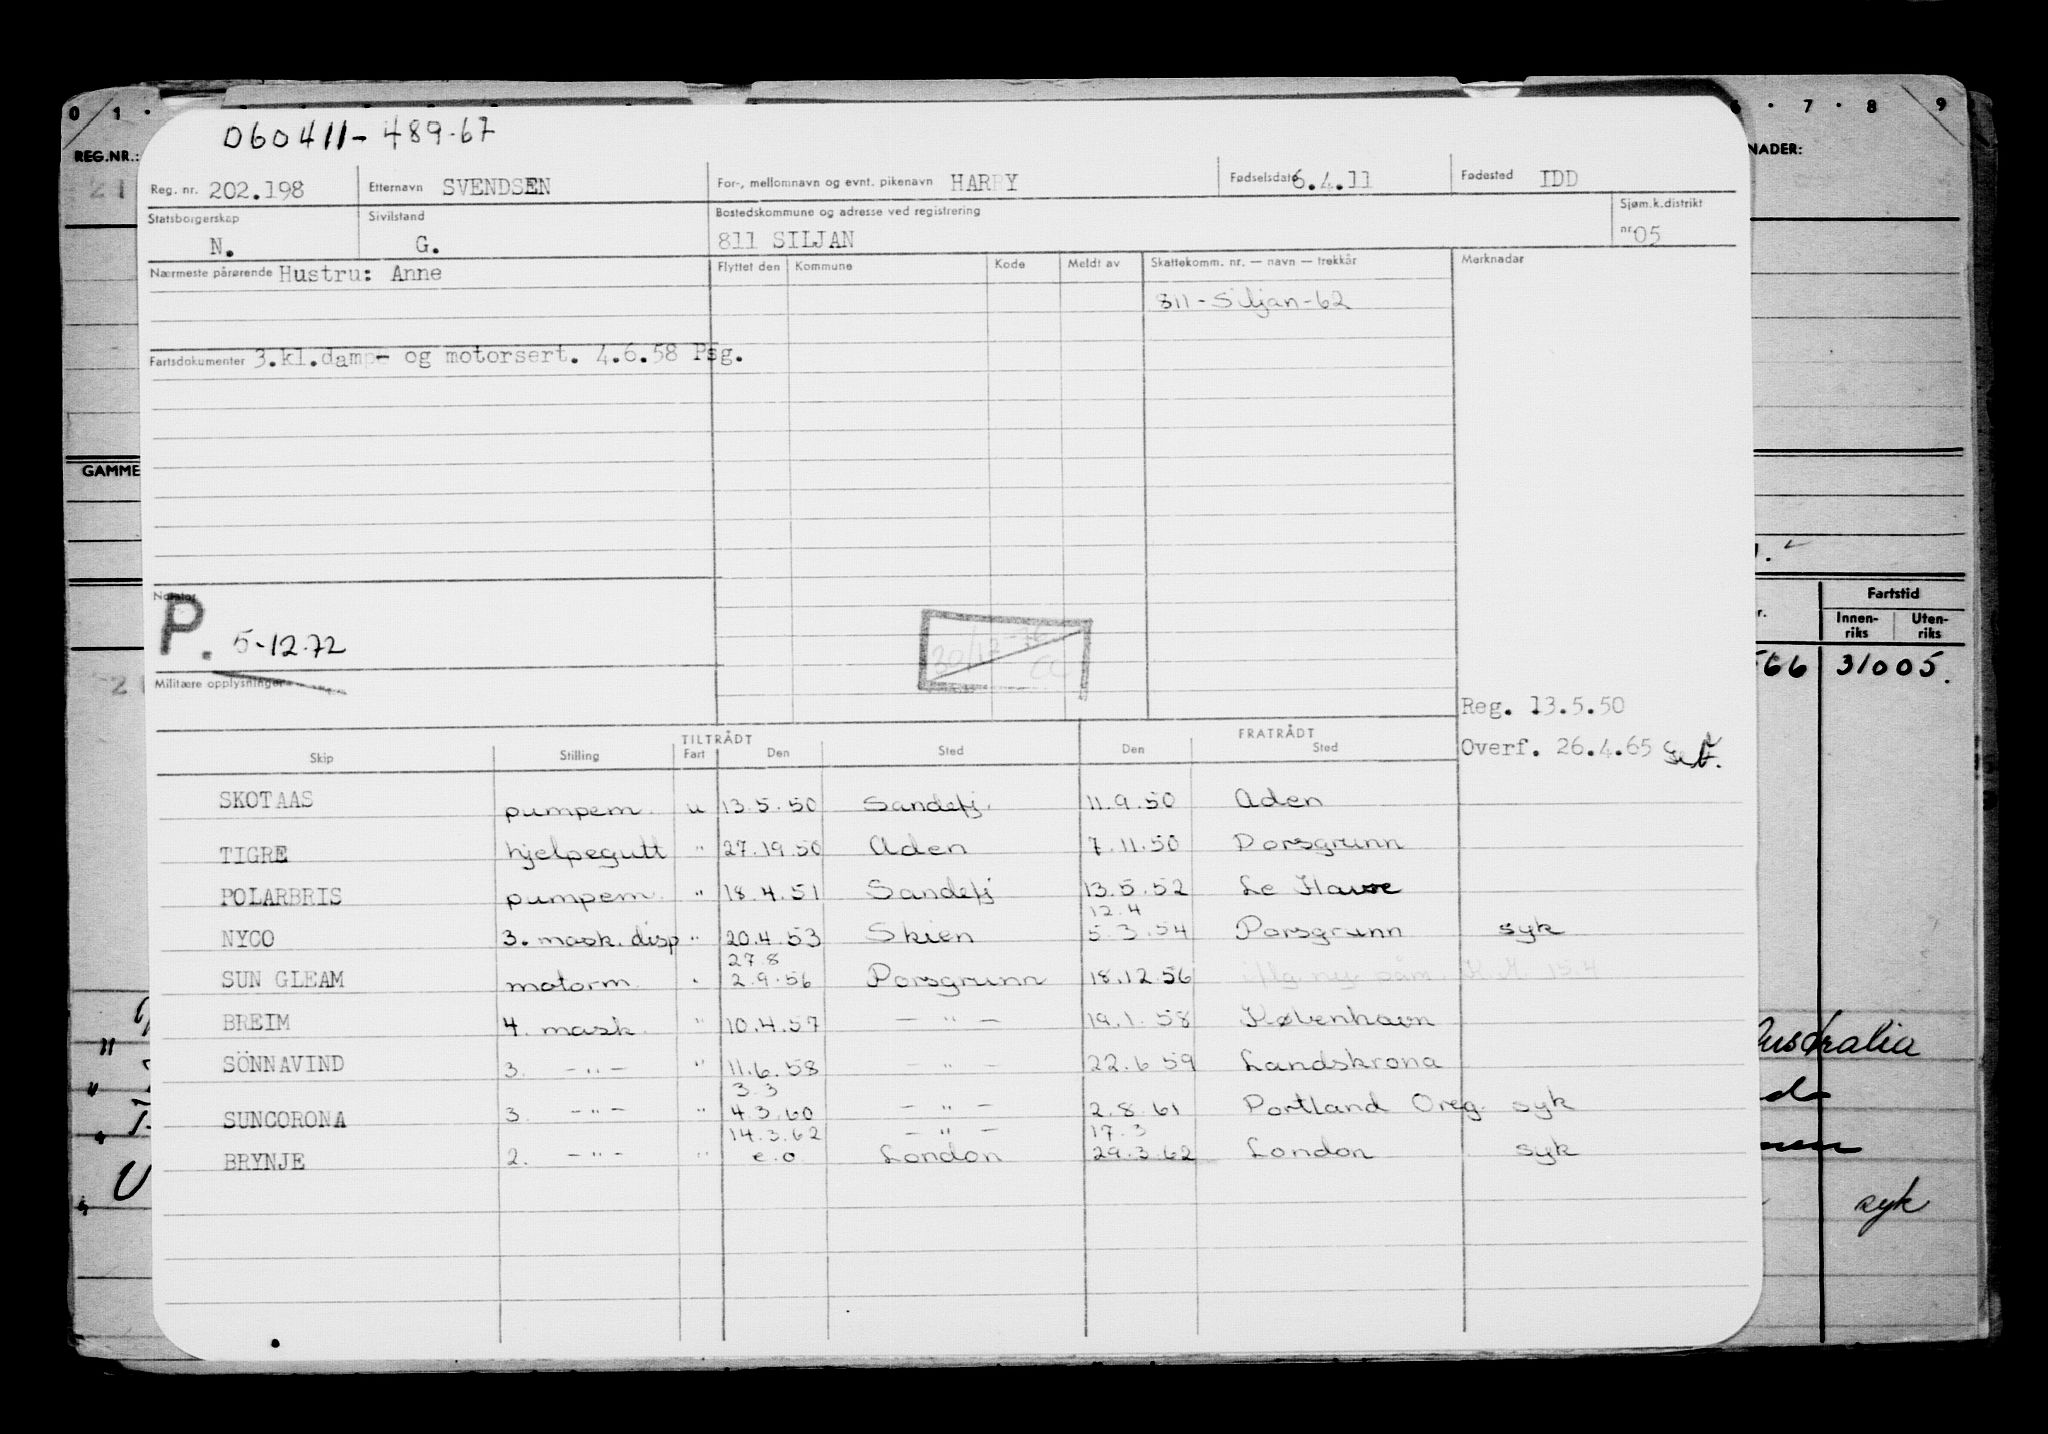 0 1 · 7 · 8 9
060411-489-67
REG.NR.: NADER:
Reg. nr. 202.198 Etternavn SVENDSEN For-, mellomnavn og evnt. pikenavn HARRY Fødselsdato 6.4.11 Fødested IDD
Statsborgerskap Sivilstand Bostedskommune og adresse ved registrering Sjøm.k.distrikt
N. G. 811 SILJAN nr 05
Nærmeste pårørende Hustru: Anne Flyttet den Kommune Kode Meldt av Skattekomm. nr. — navn — trekkår Merknader
811-Siljan-62
Fartsdokumenter 3.kl.damp- og motorsert. 4.6.58 Psg.
GAMME
Notater
P. 5-12.72
Fartstid
Innen-riks Uten-riks
566 31005.
Militære opplysninger
Reg. 13.5.50
Overf. 26.4.65
TILTRÅDT FRATRÅDT
Skip Stilling Fart Den Sted Den Sted
SKOTAAS pumpem. u 13.5.50 Sandefj. 11.9.50 Aden
TIGRE hjelpegutt " 27.19.50 Aden 7.11.50 Porsgrunn
POLARBRIS pumpem. " 18.4.51 Sandefj 13.5.52 Le Havre
12.4
NYCO 3. mask. disp " 20.4.53 Skien 5.3.54 Porsgrunn syk
27.8
SUN GLEAM motorm. " 2.9.56 Porsgrunn 18.12.56
BREIM 4. mask. " 10.4.57 — " — 19.1.58 København
SÖNNAVIND 3. — " — " 11.6.58 — " — 22.6.59 Landskrona
3.3
SUNCORONA 3. — " — " 4.3.60 — " — 2.8.61 Portland Oreg. syk
14.3.62 — " — 17.3
BRYNJE 2. — " — " e.o. London 29.3.62 London syk
Australia
syk